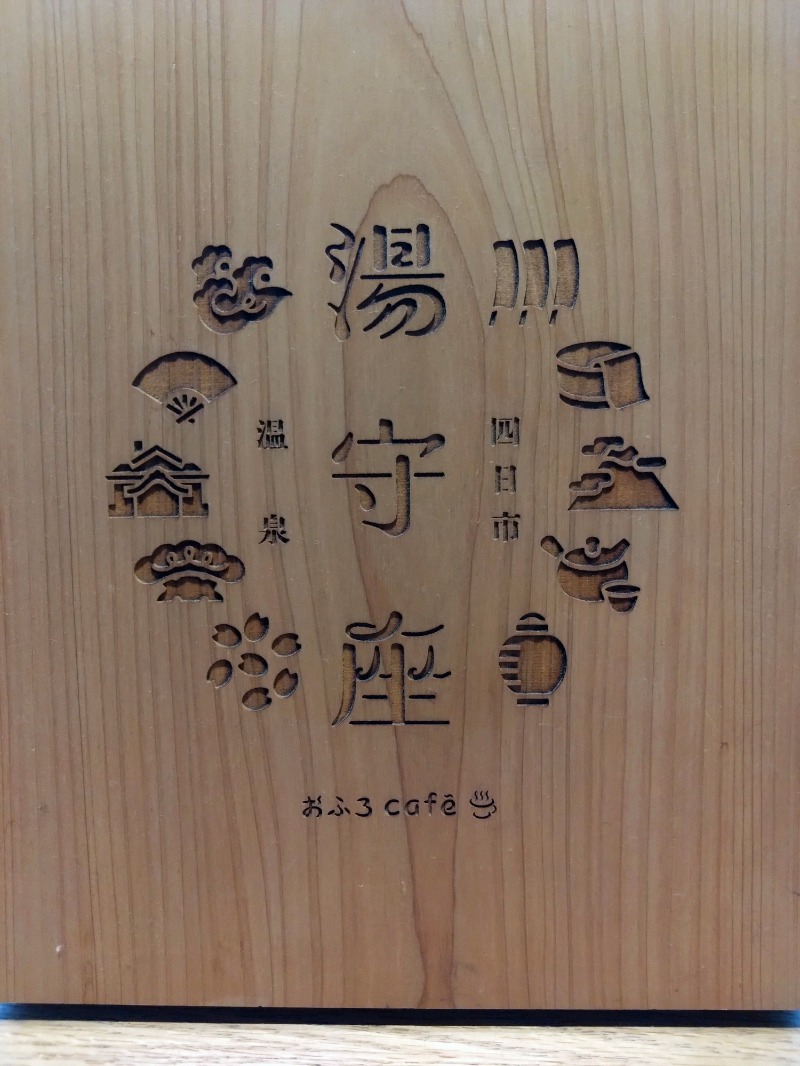 四日市
温泉
湯守座
おふろcafé